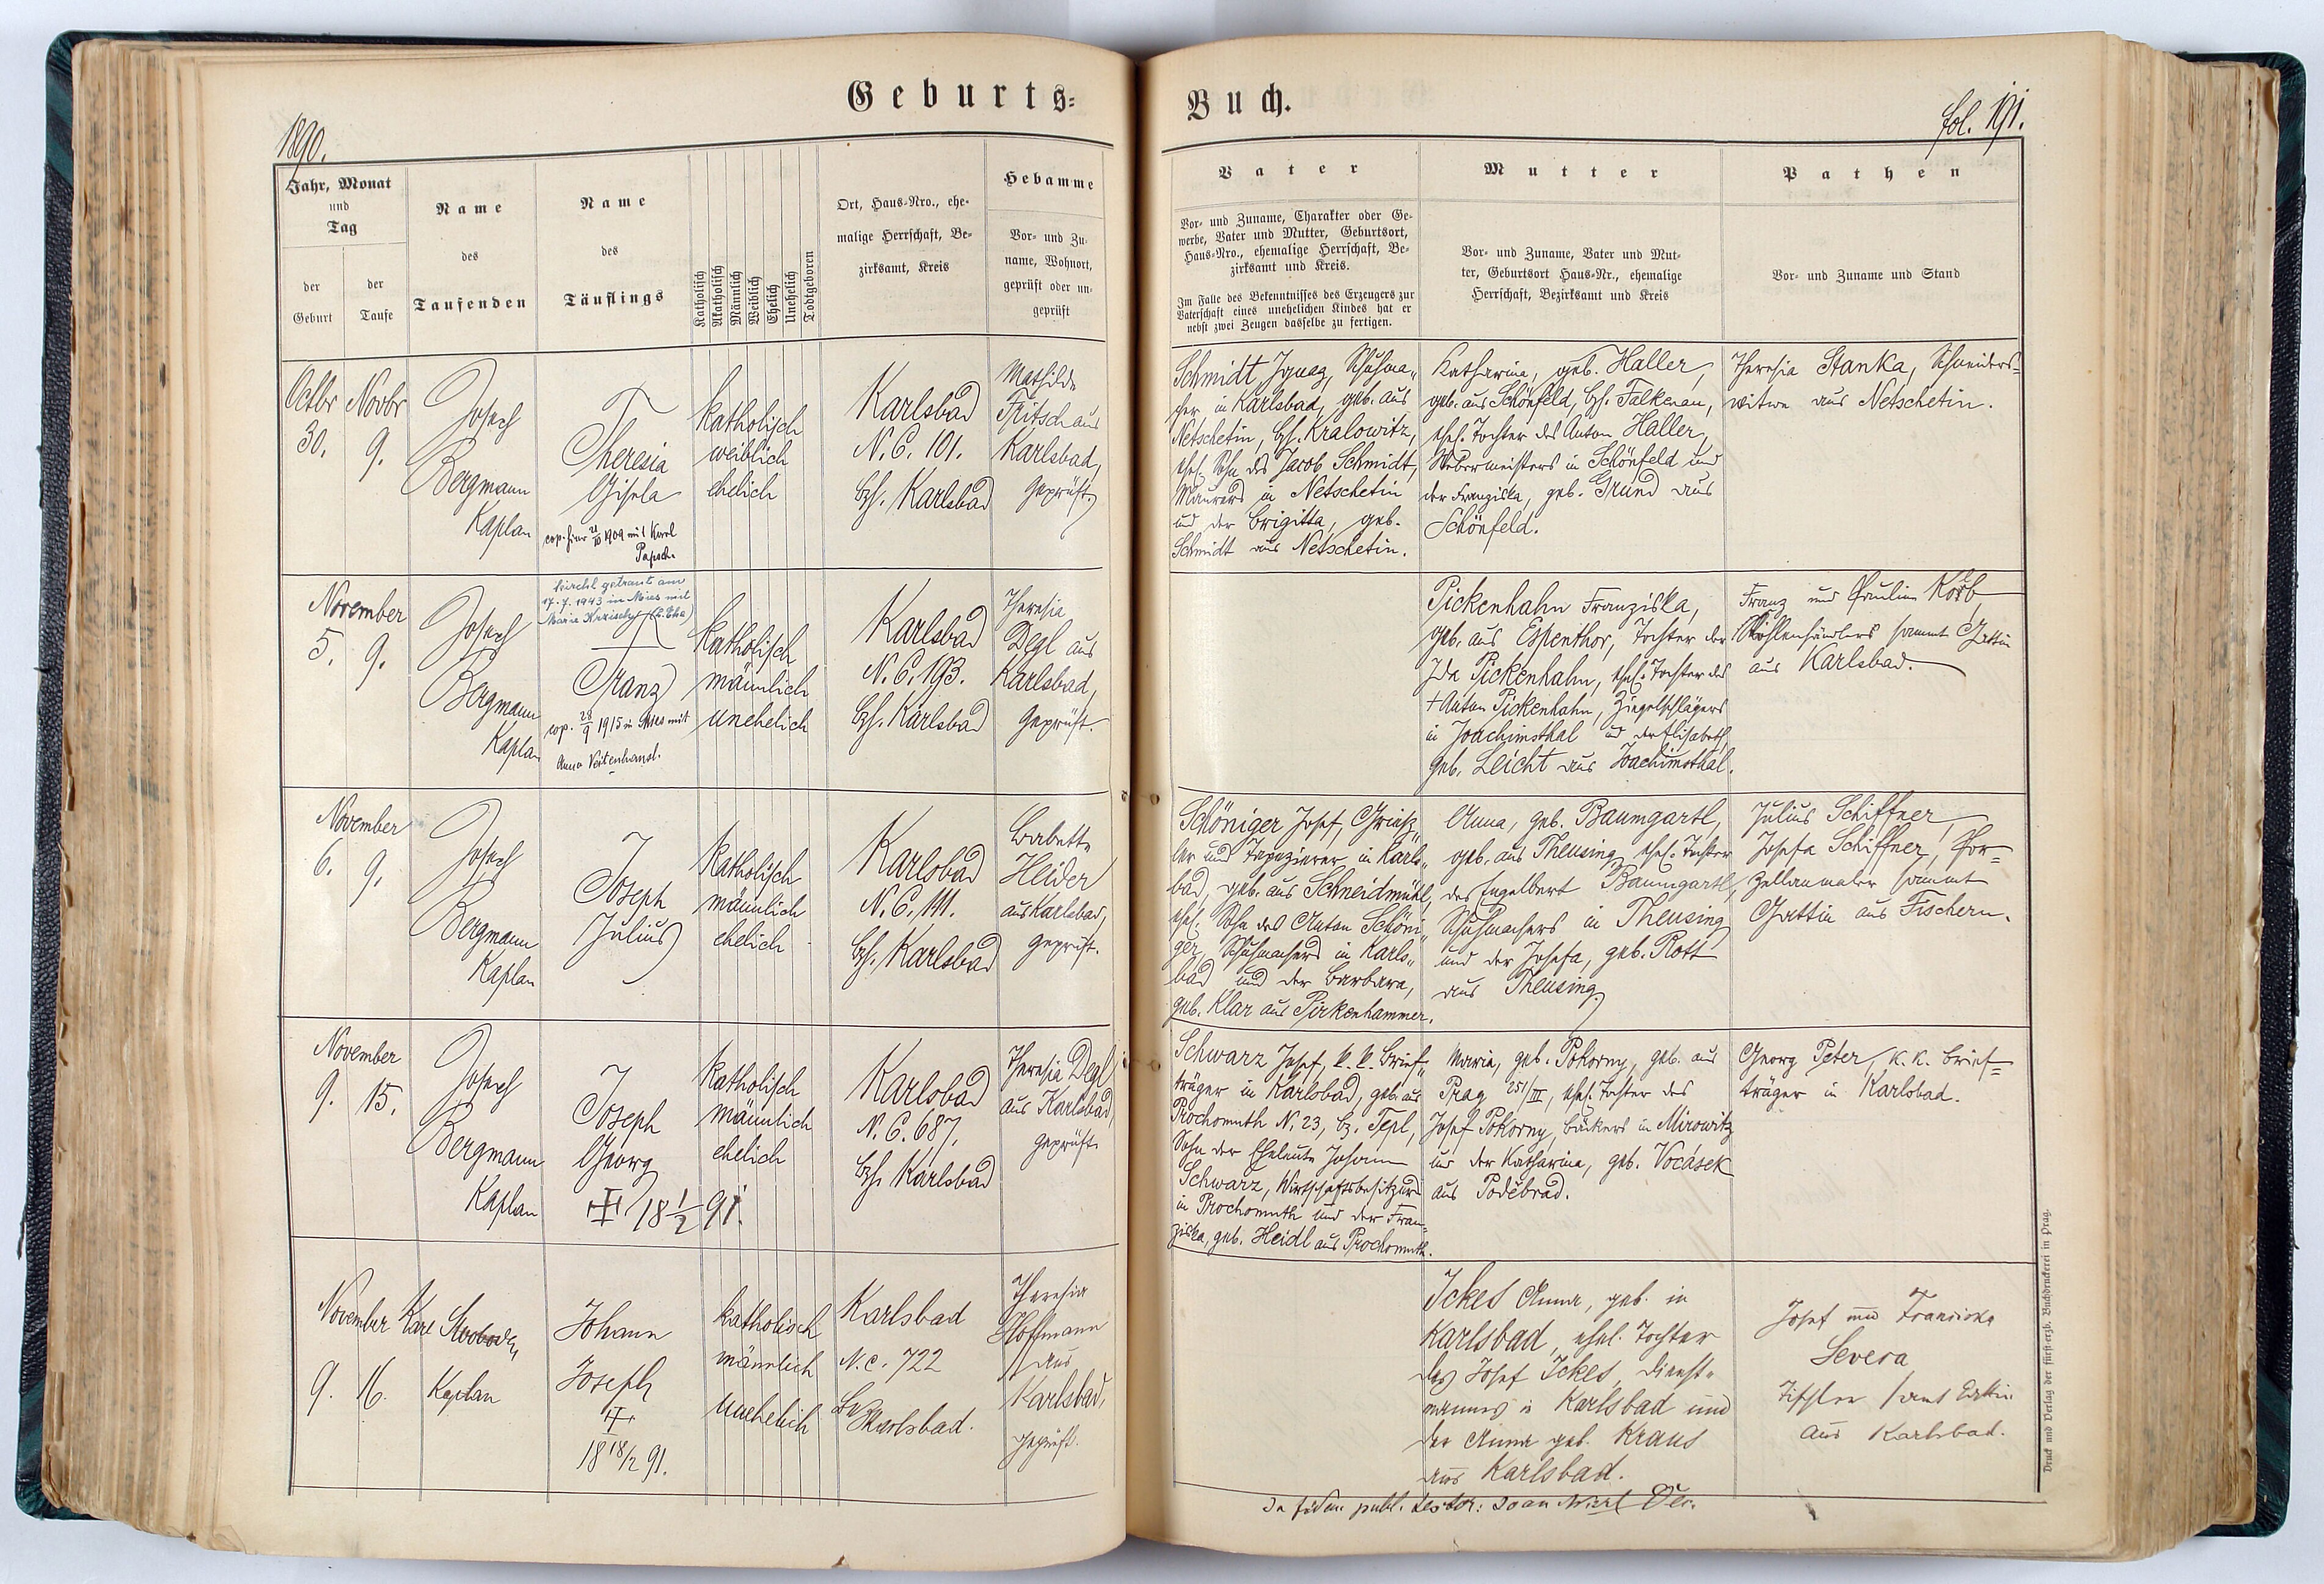 Geburts=
Buch.
1890.
fol. 191.
Jahr, Monat
und
Tag
der
Geburt
der
Taufe
Name
des
Taufenden
Name
des
Täuflings
Katholisch
Akatholisch
Männlich
Weiblich
Ehelich
Unehelich
Todtgeboren
Ort, Haus-Nro., ehe-
malige Herrschaft, Be-
zirksamt, Kreis
Hebamme
Vor- und Zu-
name, Wohnort,
geprüft oder un-
geprüft
Vater
Vor- und Zuname, Charakter oder Ge-
werbe, Vater und Mutter, Geburtsort,
Haus-Nro., ehemalige Herrschaft, Be-
zirksamt und Kreis.
Im Falle des Bekenntnisses des Erzeugers zur
Vaterschaft eines unehelichen Kindes hat er
nebst zwei Zeugen dasselbe zu fertigen.
Mutter
Vor- und Zuname, Vater und Mut-
ter, Geburtsort Haus-Nr., ehemalige
Herrschaft, Bezirksamt und Kreis
Pathen
Vor- und Zuname und Stand
Octbr
30.
Novbr
9.
Josef
Bergmann
Kaplan
Theresia
Gisela
cop. hier 21/10 1909 mit Karl
Papsch
katholisch
weiblich
ehelich
Karlsbad
N.C. 101.
Bzh. Karlsbad
Mathilde
Fritsch aus
Karlsbad,
geprüft.
Schmidt, Ignaz, Schuhma„
cher in Karlsbad, geb. aus
Netschetin, Bh. Kralowitz,
ehel. Sohn des Jacob Schmidt,
Maurers in Netschetin
und der Brigitta, geb.
Schmidt aus Netschetin.
Katharina, geb. Haller,
geb. aus Schönfeld, Bh. Falkenau,
ehel. Tochter des Anton Haller,
Webermeisters in Schönfeld und
der Franziska, geb. Grund aus
Schönfeld.
Theresia Stanka, Schneiders=
witwe aus Netschetin.
November
5. 9.
Josef
Bergmann
Kaplan
kirchl getraut am
17.7.1943 in Mies mit
Franz
cop. 28/9 1915 in Mies mit
Anna
katholisch
männlich
unehelich
Karlsbad
N.C. 193.
Bzh. Karlsbad
Theresia
Degl aus
Karlsbad,
geprüft.
Pickenhahn Franziska,
geb. aus Espenthor, Tochter der
Ida Pickenhahn, ehel. Tochter des
† Anton Pickenhahn, Ziegelschlägers
in Joachimsthal und der Elisabeth,
geb. Leicht aus Joachimsthal.
Franz und Paulina
Kohlenhändlers sammt Gattin
aus Karlsbad.
November
6. 9.
Josef
Bergmann
Kaplan
Joseph
Julius
katholisch
männlich
ehelich
Karlsbad
N.C. 111.
Bzh. Karlsbad
Babette
Heider
aus Karlsbad,
geprüft.
Schöniger Josef,
ler und Tapezierer in Karls„
bad, geb. aus Schneidmühl,
ehel. Sohn des Anton Schöni„
ger, Schuhmachers in Karls„
bad und der Barbara,
geb. Klar aus Pirkenhammer.
Anna, geb. Baumgartl,
geb. aus Theusing, ehel. Tochter
des Engelbert Baumgartl,
Schuhmachers in Theusing
und der Josefa, geb. Rott
aus Theusing.
Julius Schiffner,
Josefa Schiffner, Por=
zellanmaler sammt
Gattin aus Fischern.
November
9. 15.
Josef
Bergmann
Kaplan
Joseph
Georg
18 1/2 91.
katholisch
männlich
ehelich
Karlsbad
N.C. 687.
Bzh. Karlsbad
Theresia Degl
aus Karlsbad,
geprüft.
Schwarz Josef, k.k. Brief„
träger in Karlsbad, geb. aus
Prochomuth N. 23, Bz. Tepl,
Sohn der Eheleute Johann
Schwarz, Wirtschaftsbesitzers
in Prochomuth und der Fran=
ziska, geb. Heidl aus Prochomuth.
Maria, geb. Pokorny, geb. aus
Prag 251/III, ehel. Tochter des
Josef Pokorny, Bäckers in Mirowitz
und der Katharina, geb. Vocásek
aus Podĕbrad.
Georg Peter, k.k. Brief=
träger in Karlsbad.
November
9. 16.
Karl Swoboda,
Kaplan
Johann
Joseph
18 18/2 91.
katholisch
männlich
unehelich
Karlsbad
N.C. 722
Bz Karlsbad.
Theresia
Hoffmann
aus
Karlsbad,
geprüft.
Ickes Anna, geb. in
Karlsbad, ehel. Tochter
des Josef Ickes, Dienst„
mannes in Karlsbad und
der Anna geb. Kraus
aus Karlsbad.
Josef und Franziska
Severa
Tischler samt Gattin
aus Karlsbad.
Druck und Verlag der fürst-erzb. Buchdruckerei in Prag.